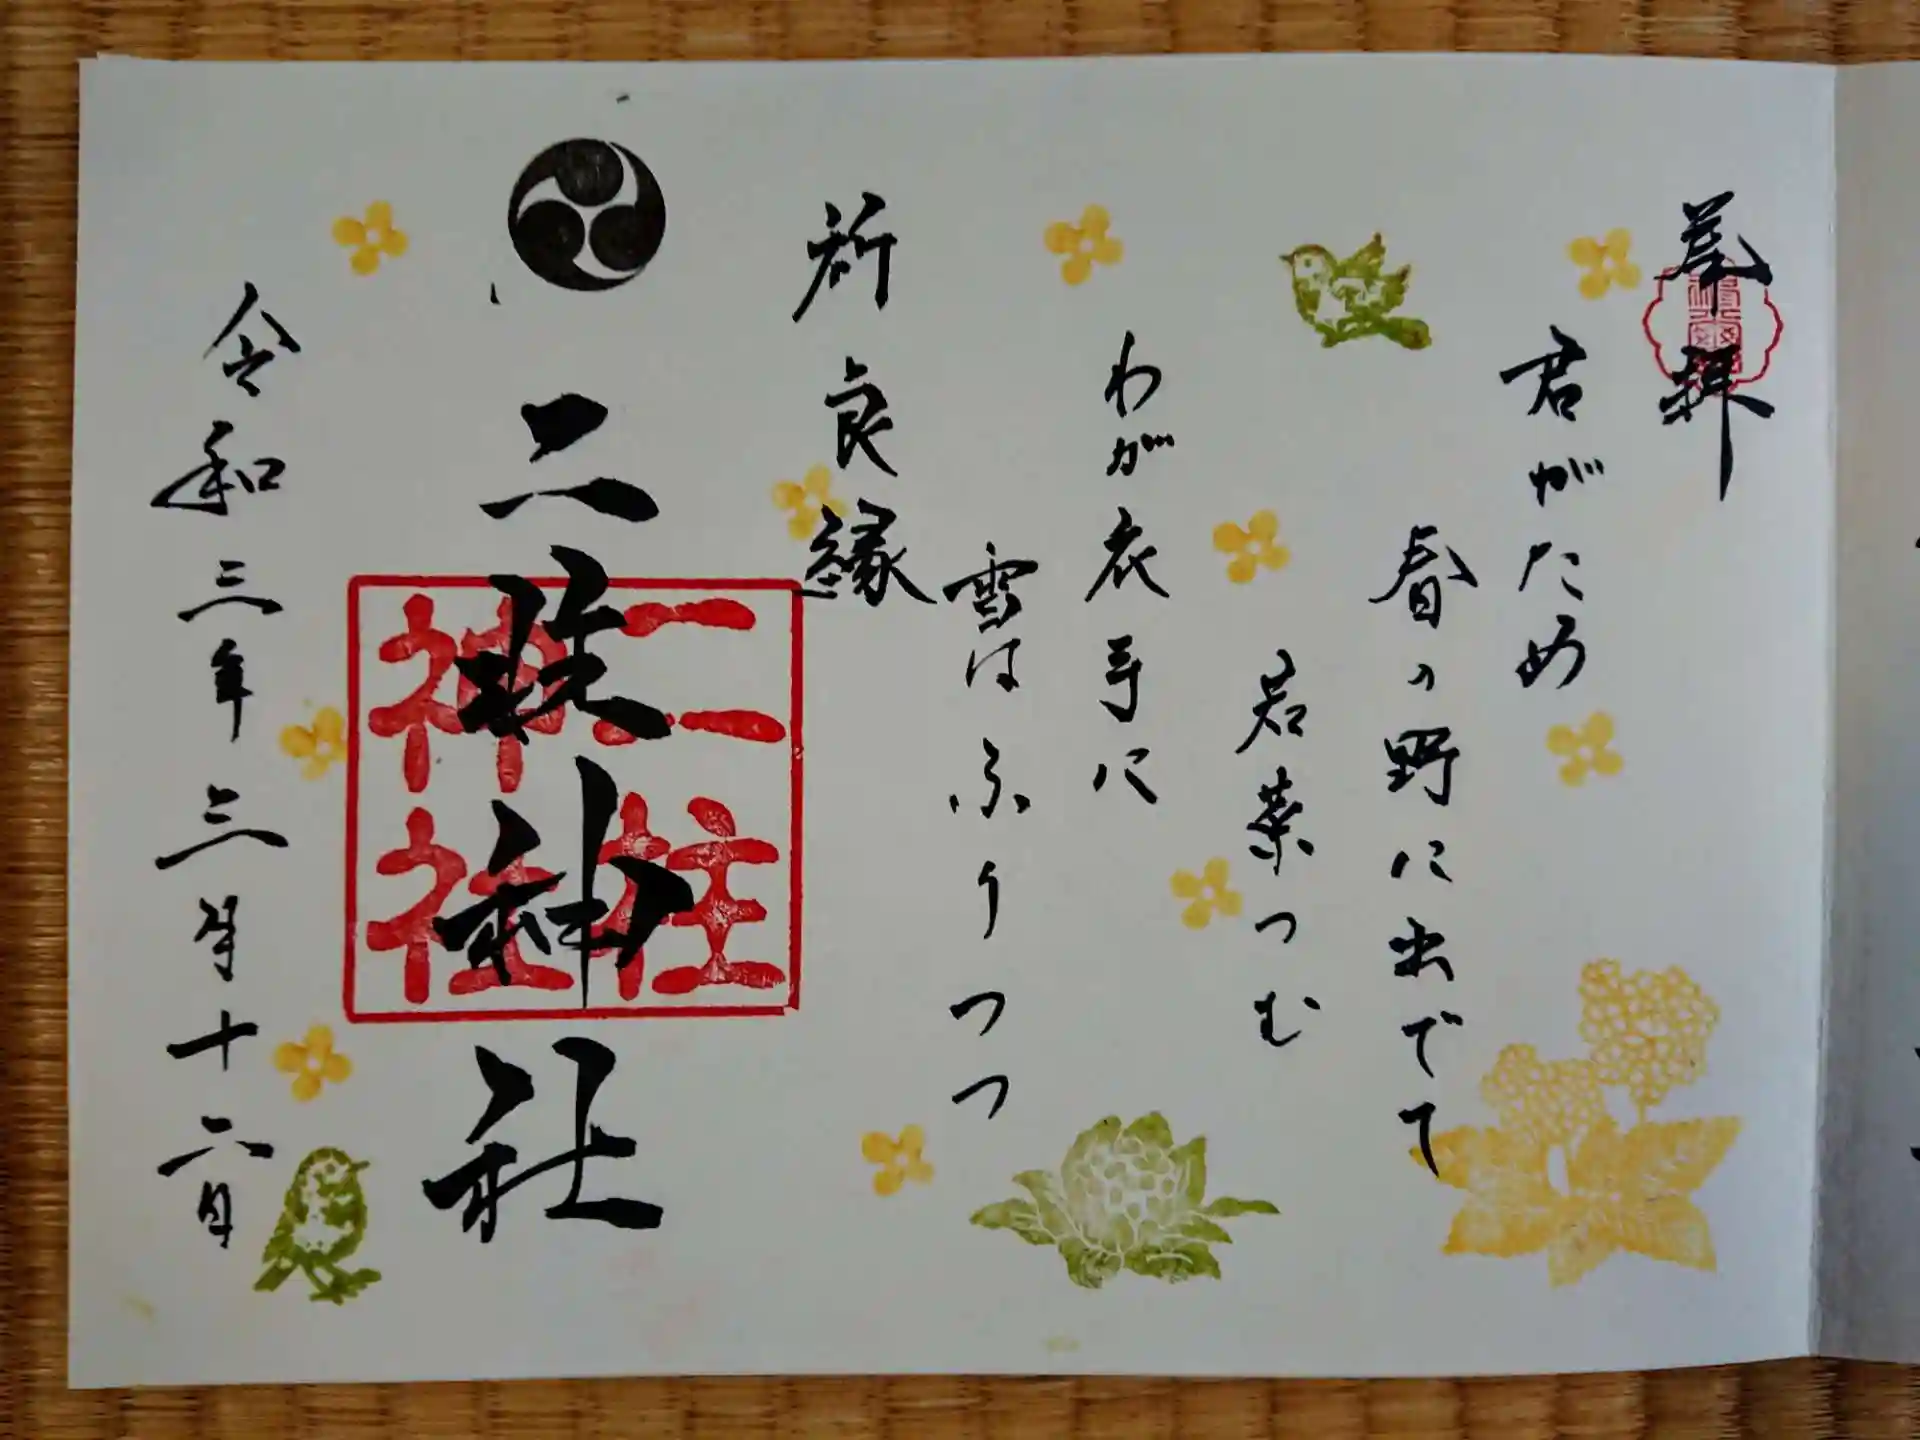 奉拝
君がため
春の野に出でて
若菜つむ
わが衣手に
雪はふりつつ
祈良縁
二柱神社
二柱神社
令和三年三月十六日